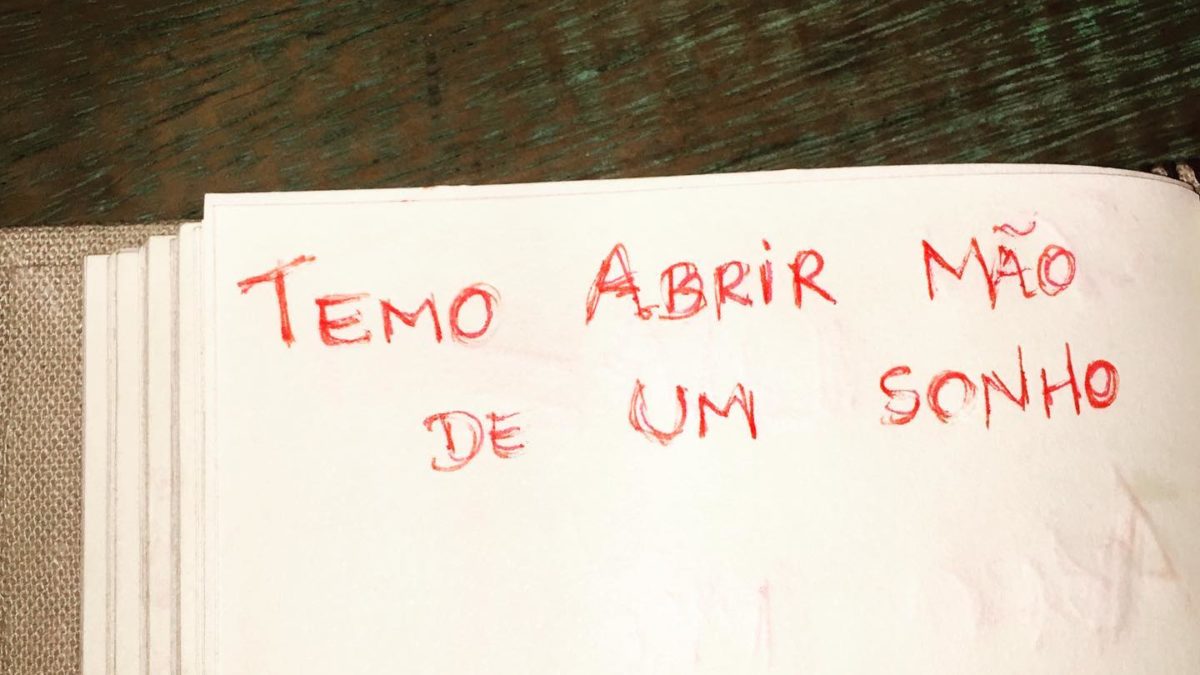 TEMO ABRIR MÃO
DE UM SONHO